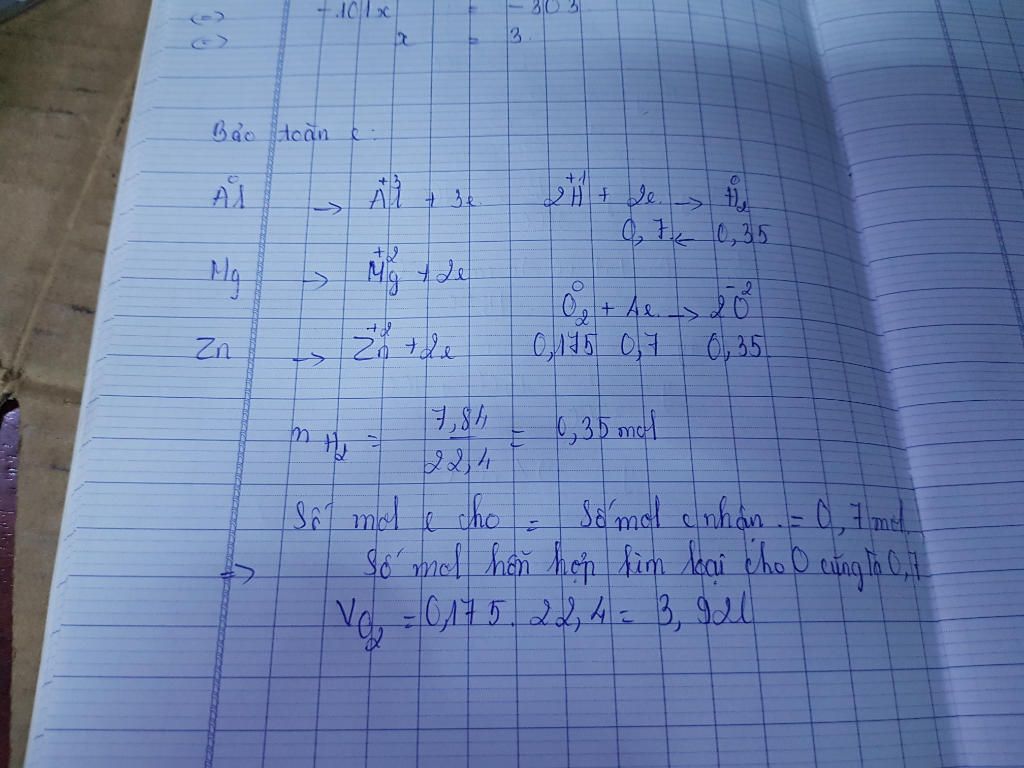 (=) -101x = -303
(=) x = 3.
Bảo toàn e:
Al⁰ → Al⁺³ + 3e 2H⁺¹ + 2e → H₂⁰
0,7 ← 0,35
Mg → Mg⁺² + 2e
O₂⁰ + 4e → 2O⁻²
Zn → Zn⁺² + 2e 0,175 0,7 0,35
n H₂ = 7,84 / 22,4 = 0,35 mol
Số mol e cho = Số mol e nhận = 0,7 mol
=> Số mol hỗn hợp kim loại cho O cũng là 0,7
V O₂ = 0,175 . 22,4 = 3,92l